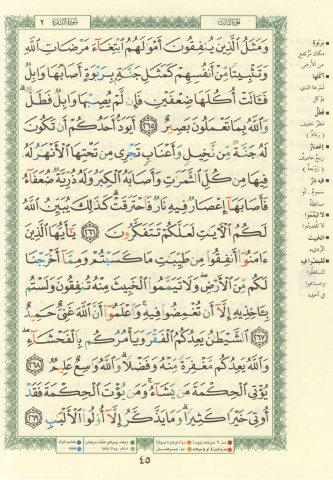 الجزء الثالث
سورة البقرة ٢
وَمَثَلُ الَّذِينَ يُنفِقُونَ أَمْوَالَهُمُ ابْتِغَاءَ مَرْضَاتِ اللَّهِ
وَتَثْبِيتًا مِّنْ أَنفُسِهِمْ كَمَثَلِ جَنَّةٍ بِرَبْوَةٍ أَصَابَهَا وَابِلٌ
فَآتَتْ أُكُلَهَا ضِعْفَيْنِ فَإِن لَّمْ يُصِبْهَا وَابِلٌ فَطَلٌّ
وَاللَّهُ بِمَا تَعْمَلُونَ بَصِيرٌ ٢٦٥ أَيَوَدُّ أَحَدُكُمْ أَن تَكُونَ
لَهُ جَنَّةٌ مِّن نَّخِيلٍ وَأَعْنَابٍ تَجْرِي مِن تَحْتِهَا الْأَنْهَارُ لَهُ
فِيهَا مِن كُلِّ الثَّمَرَاتِ وَأَصَابَهُ الْكِبَرُ وَلَهُ ذُرِّيَّةٌ ضُعَفَاءُ
فَأَصَابَهَا إِعْصَارٌ فِيهِ نَارٌ فَاحْتَرَقَتْ كَذَٰلِكَ يُبَيِّنُ اللَّهُ
لَكُمُ الْآيَاتِ لَعَلَّكُمْ تَتَفَكَّرُونَ ٢٦٦ يَا أَيُّهَا الَّذِينَ
آمَنُوا أَنفِقُوا مِن طَيِّبَاتِ مَا كَسَبْتُمْ وَمِمَّا أَخْرَجْنَا
لَكُم مِّنَ الْأَرْضِ وَلَا تَيَمَّمُوا الْخَبِيثَ مِنْهُ تُنفِقُونَ وَلَسْتُم
بِآخِذِيهِ إِلَّا أَن تُغْمِضُوا فِيهِ وَاعْلَمُوا أَنَّ اللَّهَ غَنِيٌّ حَمِيدٌ
٢٦٧ الشَّيْطَانُ يَعِدُكُمُ الْفَقْرَ وَيَأْمُرُكُم بِالْفَحْشَاءِ
وَاللَّهُ يَعِدُكُم مَّغْفِرَةً مِّنْهُ وَفَضْلًا وَاللَّهُ وَاسِعٌ عَلِيمٌ ٢٦٨
يُؤْتِي الْحِكْمَةَ مَن يَشَاءُ وَمَن يُؤْتَ الْحِكْمَةَ فَقَدْ
أُوتِيَ خَيْرًا كَثِيرًا وَمَا يَذَّكَّرُ إِلَّا أُولُو الْأَلْبَابِ ٢٦٩
بربوة
مكان مرتفع
من الأرض
أكلها
ثمرها الذي
يؤكل
فطل
مطر خفيف
إعصار
ريح عاصف
لا تيمموا
لا تقصدوا
الخبيث
الرديء
تغمضوا فيه
٤٥